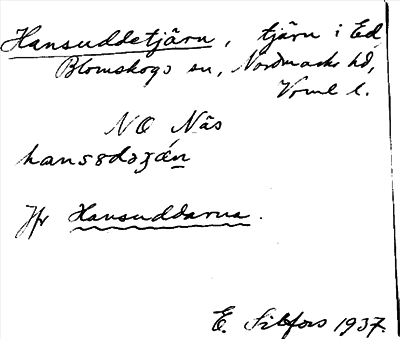 Hansuddetjärn, tjärn i Ed,
Blomskogs sn, Nordmarks hd,
Vrml l.
NO Näs
hanssdəʒán
Jfr Hansuddarna.
E. Sibfors 1937.